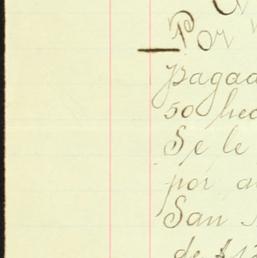 Por
pagad
50 hec
Se le
por a
San
de